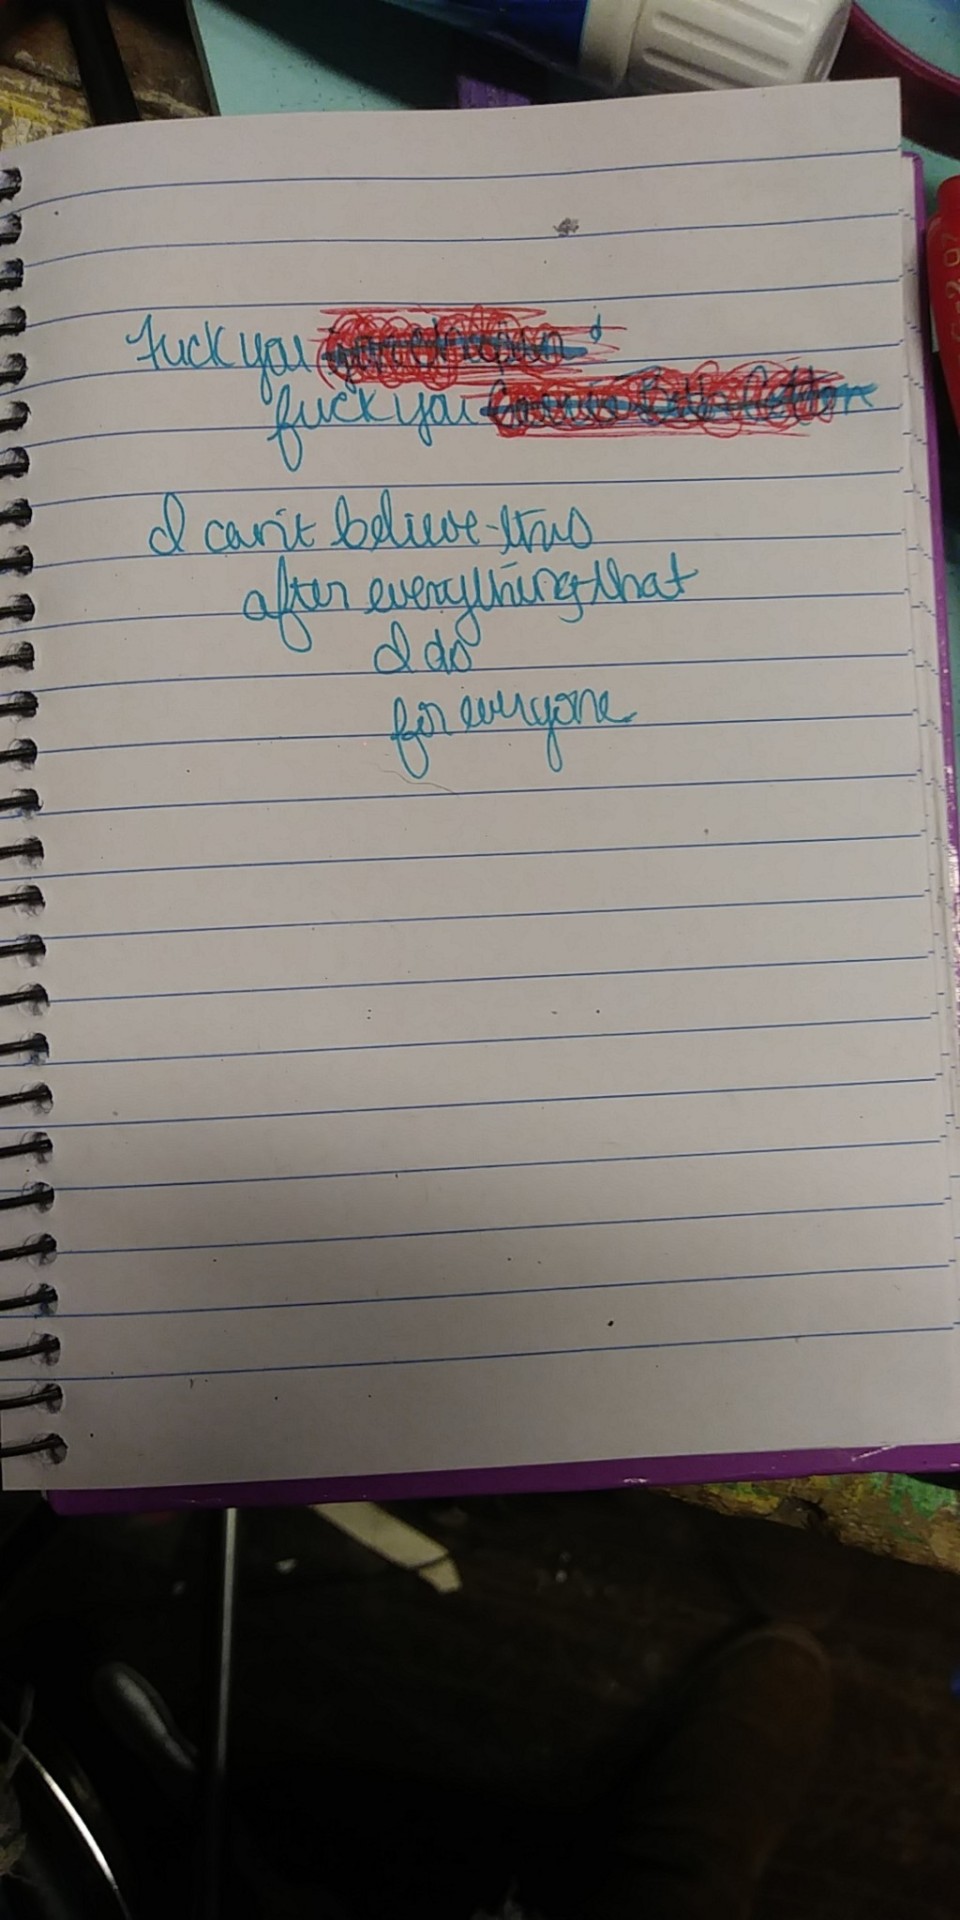 Fuck you
fuck you
I can't believe this
after everything that
I do
for everyone